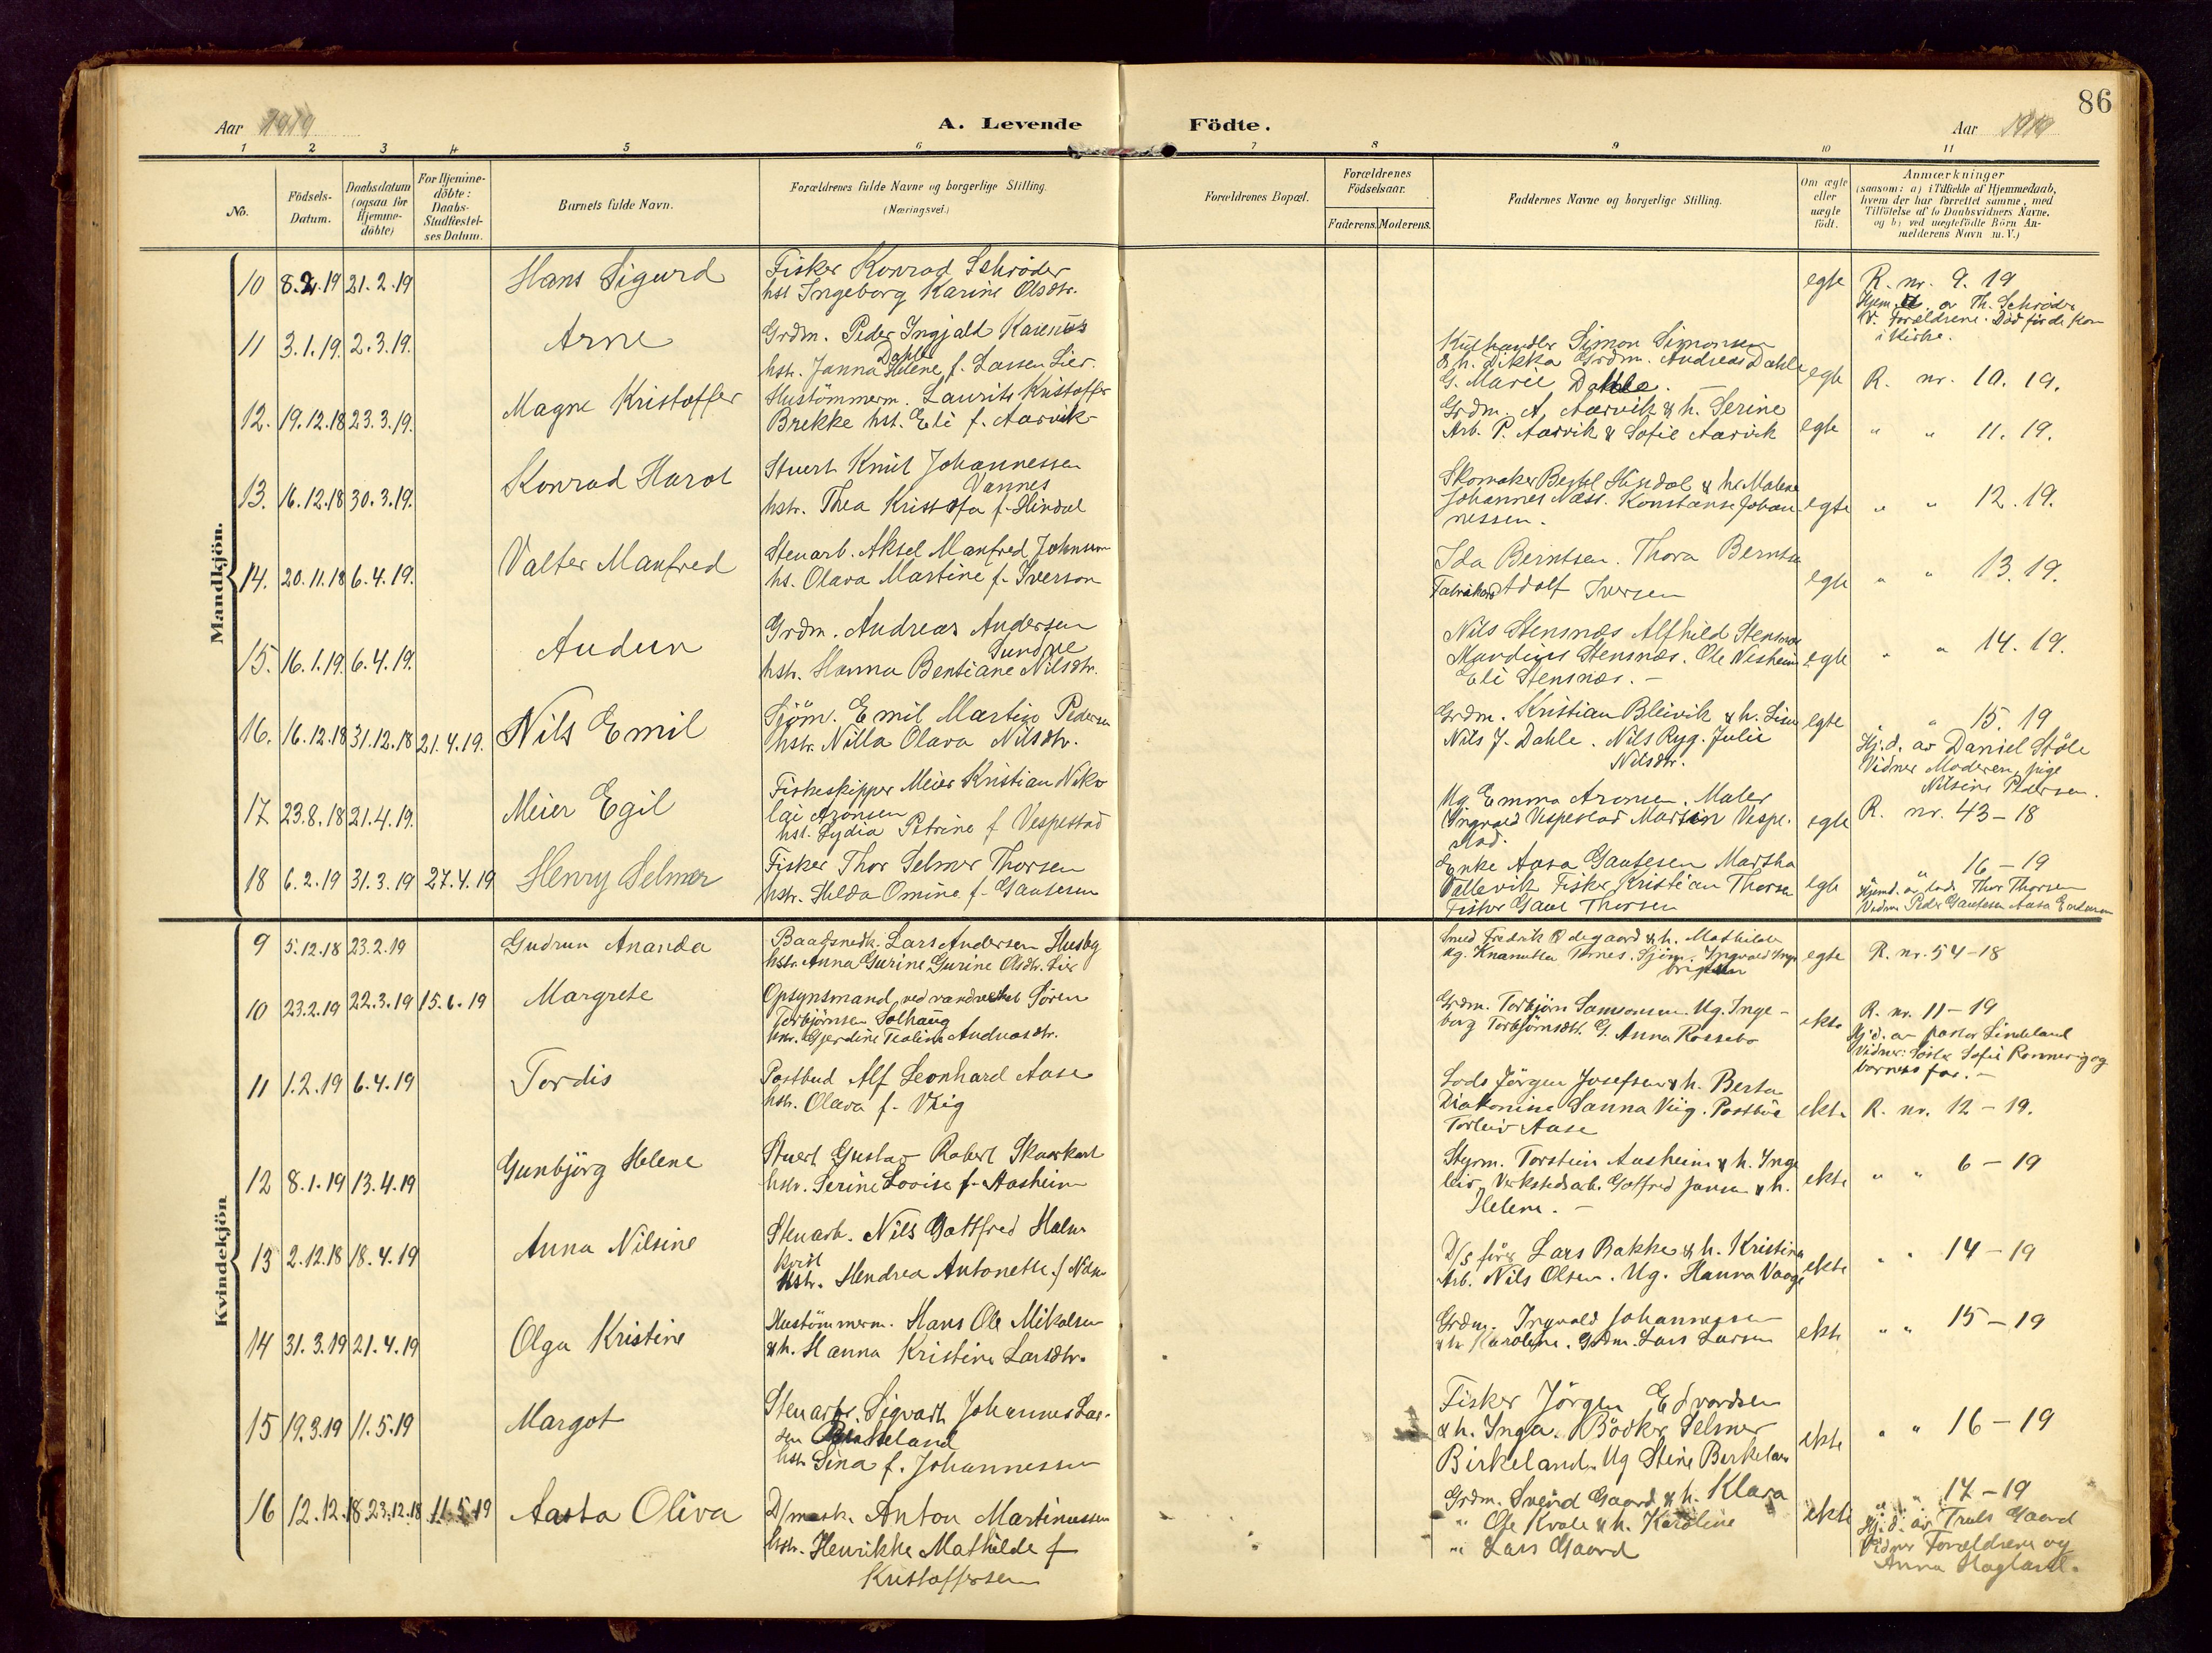 86
Aar 1919
A. Levende Födte.
Aar 1919
1 2 3 4 5 6 7 8 9 10 11
No.
Födsels-Datum.
Daabsdatum (ogsaa for Hjemme-döbte)
For Hjemme-döbte: Daabs-Stadfæstel-ses Datum.
Barnets fulde Navn.
Forældrenes fulde Navne og borgerlige Stilling.
(Næringsvei.)
Forældrenes Bopæl.
Forældrenes Födselsaar.
Faderens. Moderens.
Faddernes Navne og borgerlige Stilling.
Om ægte eller uægte födt.
Anmærkninger
(saasom: a) i Tilfælde af Hjemmedaab,
hvem der har forrettet samme, med
Tilföielse af to Daabsvidners Navne,
og b) ved uægtefödte Börn An-
melderens Navn m. V.)
Mandkjön.
10 8.2.19 21.2.19 Hans Sigurd
Fisker Konrad Schröder
hst Ingeborg Karine Olsdtr.
egte
R. nr. 9. 19
Hjem. av Th. Schröder
V. Forældrene. Död för de kom
i kirke.
11 3.1.19. 2.3.19. Arne
Grdm. Peder Ingjald Karenius
Dahle
hstr. Janna Helene f. Lassen Lier.
Simon Simonsen
& h. Dikka Grdm. Andreas Dahle
G. Marie Dahle.
egte
R. nr. 10. 19.
12. 19.12.18 23.3.19. Magne Kristoffer
Hustömmerm. Laurits Kristoffer
Brekke hst. Eli f. Aarvik
Grdm. A. Aarvik & h. Serine
Arb. P. Aarvik & Sofie Aarvik
egte
" " 11. 19.
13. 16.12.18 30.3.19. Konrad Harot
Stuert Knut Johannessen
Vannes
hstr. Thea Kristofa f. Hindal
Skomaker Bertel Hindal & hr. Malene
Johannes Næss. Konstanse Johan
nessen.
egte
" " 12. 19.
14. 20.11.18 6.4.19. Valter Manfred
Stenarb. Aksel Manfred Johnsen
hs. Olava Martine f. Iverson
Ida Berntsen. Thora Berntsen
Adolf Iversen
egte
" " 13. 19.
15. 16.1.19. 6.4.19. Audun
Grdm. Andreas Andersen
Sundne
hstr. Hanna Bentiane Nilsdtr.
Nils Stensnæs Alfhild Stensnæs
Mandius Stensnæs. Ole Nesheim
Eli Stensnæs. -
egte
" " 14. 19.
16. 16.12.18 31.12.18 21.4.19. Nils Emil
Sjöm. Emil Martin Pedersen
hstr. Nilla Olava Nilsdtr.
Grdm. Kristian Bleivik & h. Lisa
Nils J. Dahle. Nils Ryg. Julie
Nilsdtr.
egte
" " 15. 19
Hj.d. av Daniel Stöle
Vidner Moderen, pige
Nilsine Pedersen.
17 23.8.18 21.4.19. Meier Egil
Fiskeskipper Meier Kristian Niko
lai Aronsen
hst. Lydia Petrine f Vespestad
Ug. Emma Aronsen. Maler
Ingvald Vespestad Martin Vespe-
stad.
egte
R. nr. 43 - 18
18 6.2.19 31.3.19 27.4.19 Henry Selmer
Fisker Thor Selmer Thorsen
hstr. Hilda Omine f. Gautesen
Enke Aasa Gautesen Martha
Vallevik Fisker Kristian Thorsen
Fisker Gaut Thorsen
egte
" 16 - 19
Hjemd. av Thor Thorsen
Vidner Peder Gautesen Aasa
Kvindekjön
9 5.12.18 23.2.19 Gudrun Ananda
Baadsnedk. Lars Andersen Husby
hstr. Anna Gurine Gurine Olsdtr. Lier
Smed Fredrik Ödegaard & h. Mathilde
Ug. Knanutta Tornes. Sjöm. Ingvald Inge
brigtsen
egte
R. nr. 54 - 18
10 23.2.19 22.3.19 15.6.19 Margrete
Opsynsmand ved vandverket Sören
Torbjörnsen Solhaug
hstr. Gjerdine Teoline Andreasdtr.
Grdm. Torbjörn Samsonsen. Ug. Inge-
borg Torbjörnsdtr. G. Anna Rossebo
ekte
R. nr. 11 - 19
Hj.d. av pastor Lindeland
Vidner: Söster Sofie Rönnevig og
barnets far. -
11 1.2.19 6.4.19 Tordis
Postbud Alf Leonhard Aase
hstr. Olava f. Viig
Lods Jörgen Josefsen & h. Berta
Diakonisse Sanna Viig. Postbud
Torleiv Aase
ekte
R. nr. 12 - 19.
12 8.1.19 13.4.19 Gunbjörg Helene
Stuert Gustav Robert Skaarkant
hstr. Serine Lovise f. Aasheim
Styrm. Torstein Aasheim & h. Inge
leiv, Verkstedsarb. Gotfred Jansen & h.
Helene. -
ekte
" " 6 - 19
13 2.12.18 18.4.19 Anna Nilsine
Stenarb. Nils Gottfred Halm
kvist
hstr. Hendrea Antonette f
D/s förer Lars Bakke & h. Kristina
Arb. Nils Olsen. Ug. Hanna Vaage
ekte
" " 14 - 19
14 31.3.19 21.4.19 Olga Kristine
Hustömmerm. Hans Ole Mikalsen
& h. Hanna Kristine Larsdtr.
Grdm. Ingvald Johannessen
& h. Karoline. Grdm. Lars Larsen
ekte
" " 15 - 19
15 19.3.19 11.5.19 Margot
Stenarb. Sigvart Johannes Lar-
sen
hstr. Sina f. Johannessen
Fisker Jörgen Edvardsen
& h. Inga. Bödker Selmer
Birkeland. Ug Stine Birkeland
ekte
" " 16 - 19
16 12.12.18 23.12.18 11.5.19 Aasta Oliva
D/mastr. Anton Martinussen
hstr. Henrikke Mathilde f
Kristoffersen
Grdm. Sveind Gaard & h. Klara
" Ole Kvale & h. Karoline
" Lars Gaard
ekte
" " 17 - 19
Hj.d. av Truls Gaard
Vidner Forældrene og
Anna Hagland.